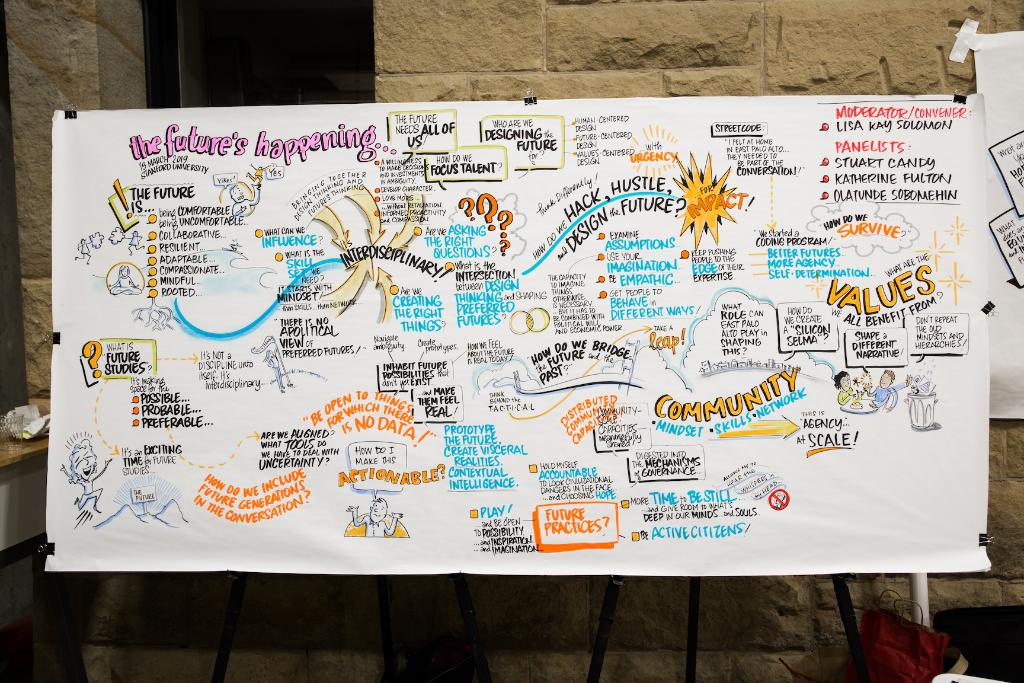 the future's happening...
MARCH 2019
STANFORD UNIVERSITY
THE FUTURE
IS...
being COMFORTABLE
being UNCOMFORTABLE
COLLABORATIVE...
RESILIENT...
ADAPTABLE...
COMPASSIONATE...
MINDFUL...
ROOTED...
YIKES!
Yes
BEING TOGETHER
DESIGN THINKING AND
FUTURES THINKING
WHAT CAN WE
INFLUENCE?
WHAT IS THE
SKILL
WE NEED?
IT STARTS WITH
MINDSET
THERE IS NO
APOLITICAL
VIEW OF
PREFERRED FUTURES!
INTERDISCIPLINARY!
THE FUTURE
NEEDS ALL OF
US
HOW DO WE
FOCUS TALENT?
A WILLINGNESS
TO MAKE
AND INVESTMENTS
IN AMBIGUITY.
DEVELOP CHARACTER...
LOVE MORE...
WHO ARE WE
DESIGNING the
FUTURE
for?
HUMAN-CENTERED
DESIGN
FUTURE-CENTERED
DESIGN
VALUES-CENTERED
DESIGN
???
Are we
ASKING
THE RIGHT
QUESTIONS?
What is the
INTERSECTION
between DESIGN
THINKING and SHAPING
PREFERRED
FUTURES?
Are we
CREATING
THE RIGHT
THINGS?
Think Differently!
HOW DO WE HACK, HUSTLE,
and DESIGN the FUTURE?
with
URGENCY
FOR
IMPACT!
EXAMINE
ASSUMPTIONS
USE YOUR
IMAGINATION.
BE EMPATHIC...
GET PEOPLE TO
BEHAVE in
DIFFERENT WAYS!
KEEP PUSHING
PEOPLE TO THE
EDGE OF THEIR
EXPERTISE.
THE CAPACITY
TO IMAGINE
THINGS
OTHERWISE
IS NECESSARY...
BUT IT HAS TO
BE COMBINED WITH
POLITICAL WILL
AND ECONOMIC POWER
STREETCODE:
"I FELT AT HOME
IN EAST PALO ALTO...
THEY NEEDED TO
BE PART OF THE
CONVERSATION!
We started a
CODING PROGRAM!
BETTER FUTURES
MORE AGENCY
SELF-DETERMINATION
MODERATOR/CONVENER:
LISA KAY SOLOMON
PANELISTS:
STUART CANDY
KATHERINE FULTON
OLATUNDE SOBOMEHIN
HOW DO WE
SURVIVE?
WHAT ARE THE
VALUES
WE ALL BENEFIT FROM?
WHAT
ROLE CAN
EAST PALO
ALTO PLAY IN
SHAPING
THIS?
HOW DO
WE CREATE
A "SILICON
SELMA"?
SHAPE a
DIFFERENT
NARRATIVE!
DON'T REPEAT
THE OLD
MINDSETS AND
HIERARCHIES!
? WHAT IS
FUTURE
STUDIES?
It's NOT a
DISCIPLINE UNTO
ITSELF. It's
INTERDISCIPLINARY...
It's making
space for the
POSSIBLE...
PROBABLE...
PREFERABLE...
It's an EXCITING
TIME for FUTURE
STUDIES...
THE FUTURE
ARE WE ALIGNED?
WHAT TOOLS DO
WE HAVE TO DEAL WITH
UNCERTAINTY?
HOW DO WE INCLUDE
FUTURE GENERATIONS
IN THE CONVERSATION?
Navigate
ambiguity
Create
prototypes.
INHABIT FUTURE
POSSIBILITIES that
don't yet EXIST
...and MAKE
THEM FEEL
REAL!
"BE OPEN TO THINGS
FOR WHICH THERE
IS NO DATA!"
HOW DO I
MAKE THIS
ACTIONABLE?
HOW WE FEEL
ABOUT THE FUTURE
IS REAL TODAY!
HOW DO WE BRIDGE
THE FUTURE and the
PAST?
TAKE A
leap!
THINK
BEYOND the
TACTICAL
PROTOTYPE
THE FUTURE.
CREATE VISCERAL
REALITIES.
CONTEXTUAL
INTELLIGENCE.
DISTRIBUTED
COMMUNITY
CAPACITY
COMMUNITY
MINDSET • SKILLS • NETWORK
THIS IS
"AGENCY...
AT SCALE!
DIGESTED INTO
the MECHANISMS
of GOVERNANCE.
HOLD MYSELF
ACCOUNTABLE
TO LOOK CIVILIZATIONAL
DANGERS IN THE FACE
...and CHOOSING HOPE
PLAY!
...and BE OPEN
TO POSSIBILITY
...and INSPIRATION
...and IMAGINATION
FUTURE
PRACTICES?
MORE TIME to BE STILL...
and GIVE ROOM TO WHAT'S
DEEP IN OUR MINDS and SOULS.
BE ACTIVE CITIZENS!
WHISPERS